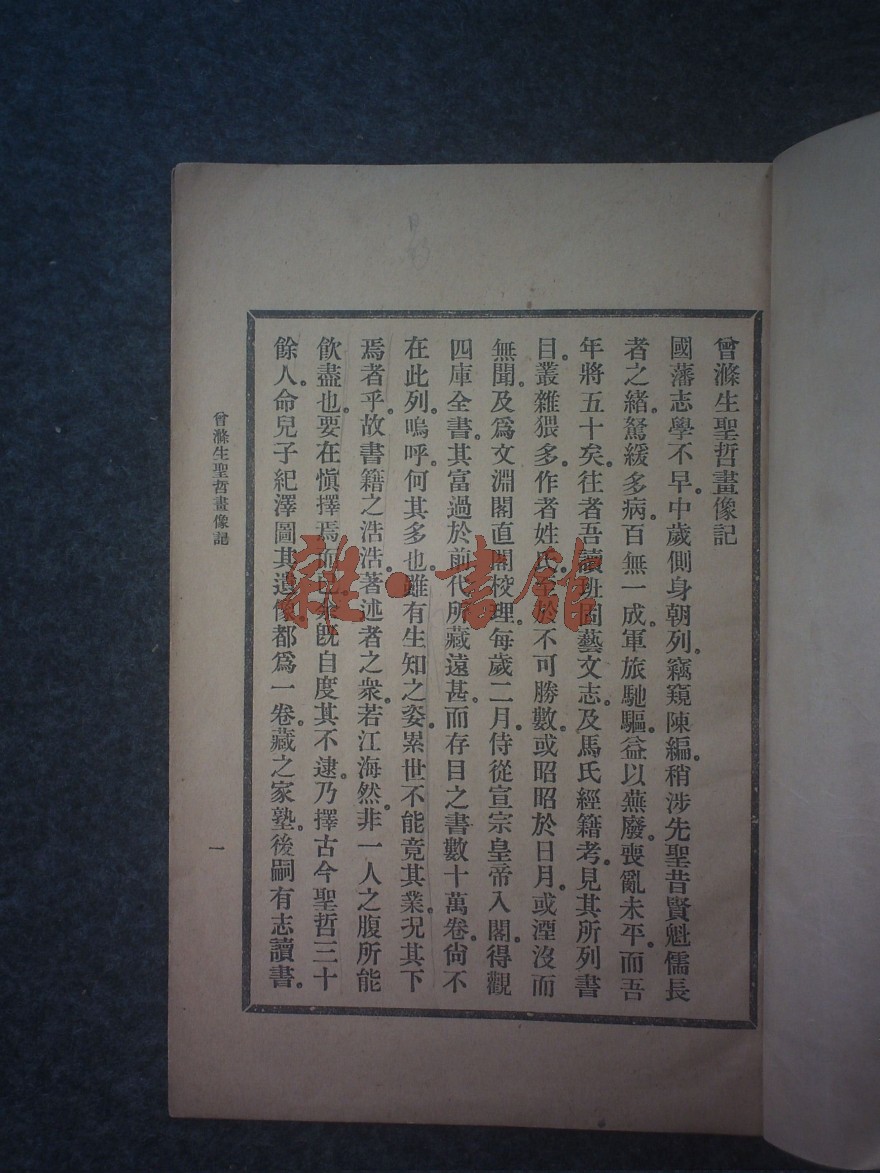 曾滌生聖哲畫像記
國藩志學不早。中歲側身朝列。竊窺陳編。稍涉先聖昔賢魁儒長
者之緒。駑緩多病。百無一成。軍旅馳驅。益以蕪廢。喪亂未平。而吾
年將五十矣。往者吾讀班固藝文志。及馬氏經籍考。見其所列書
目。叢雜猥多。作者姓氏。至於不可勝數。或昭昭於日月。或湮沒而
無聞。及爲文淵閣直閣校理。每歲二月。侍從宣宗皇帝入閣。得觀
四庫全書。其富過於前代所藏遠甚。而存目之書數十萬卷。尙不
在此列。嗚呼。何其多也。雖有生知之姿。累世不能竟其業。況其下
焉者乎。故書籍之浩浩。著述者之衆。若江海然。非一人之腹所能
飮盡也。要在愼擇焉而已。余旣自度其不逮。乃擇古今聖哲三十
餘人。命兒子紀澤圖其遺像。都爲一卷。藏之家塾。後嗣有志讀書。
曾滌生聖哲畫像記
一
雜·書館